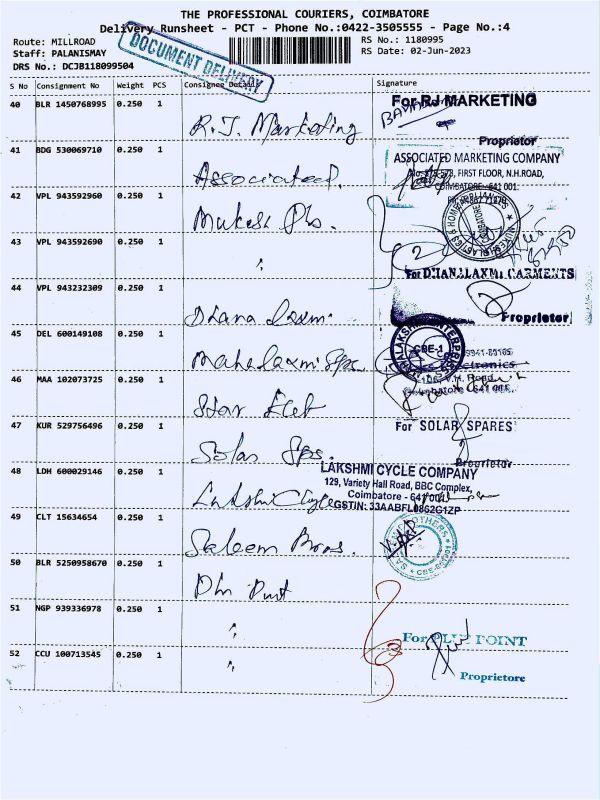 THE PROFESSIONAL COURIERS, COIMBATORE
Delivery Runsheet - PCT - Phone No.:0422-3505555 - Page No.:4
Route: MILLROAD
RS No.: 1180995
Staff: PALANISMAY
RS Date: 02-Jun-2023
DRS No.: DCJB118099504
DOCUMENT DELIVERY
S No Consignment No Weight PCS Consignee Details Signature
40 BLR 1450768995 0.250 1 R.J. Marketing
For RJ MARKETING
Proprietor
41 BDG 530069710 0.250 1 Associated.
ASSOCIATED MARKETING COMPANY
FIRST FLOOR, N.H.ROAD,
COIMBATORE - 641 001.
42 VPL 943592960 0.250 1 Mukesh Pls.
43 VPL 943592690 0.250 1 "
For DHANALAXMI GARMENTS
Proprietor
44 VPL 943232309 0.250 1 Dhana Laxmi
45 DEL 600149108 0.250 1 Mahalaxmi Eps.
CBE-1
46 MAA 102073725 0.250 1 Star Elet
47 KUR 529756496 0.250 1 Solar Sps.
For SOLAR SPARES
Proprietor
48 LDH 600029146 0.250 1 Lakshmi Cycle
LAKSHMI CYCLE COMPANY
129, Variety Hall Road, BBC Complex,
Coimbatore - 641 001
GSTIN: 33AABFL0862G1ZP
49 CLT 15634654 0.250 1 Saleem Bros.
50 BLR 5250958670 0.250 1
51 NGP 939336978 0.250 1 "
For BLUE POINT
52 CCU 100713545 0.250 1 "
Proprietore